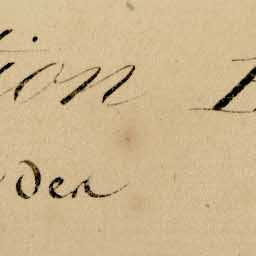 tion
den